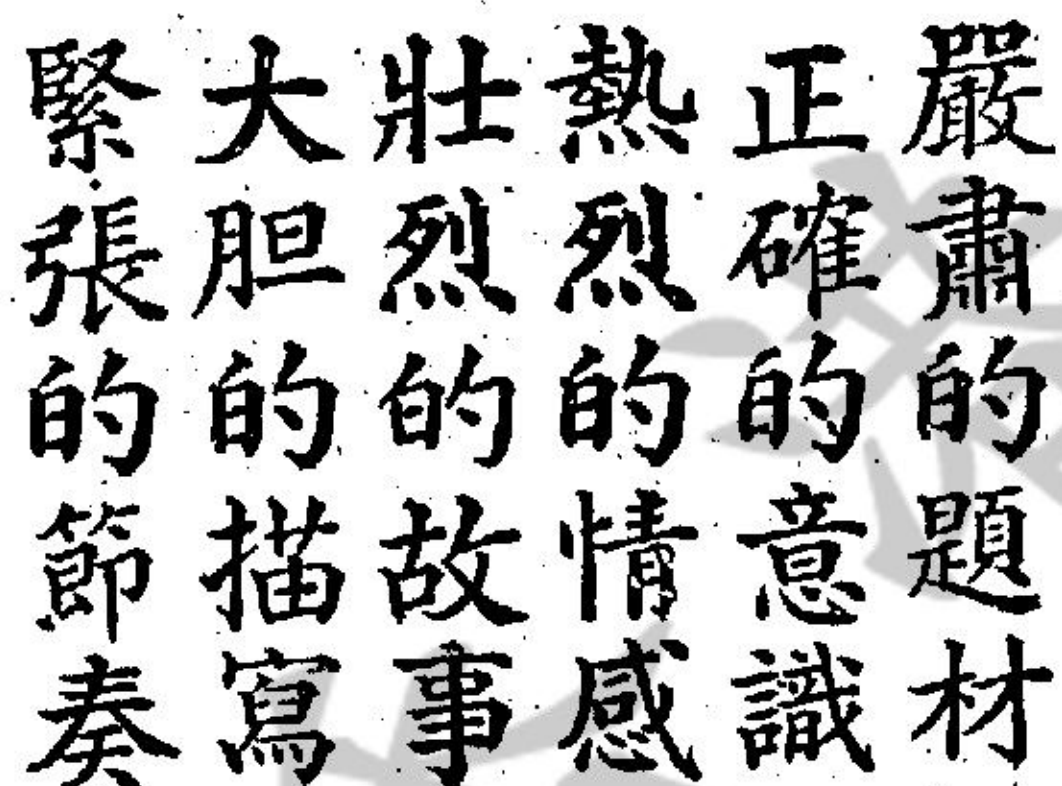 嚴肅的題材
正確的意識
熱烈的情感
壯烈的故事
大胆的描寫
緊張的節奏